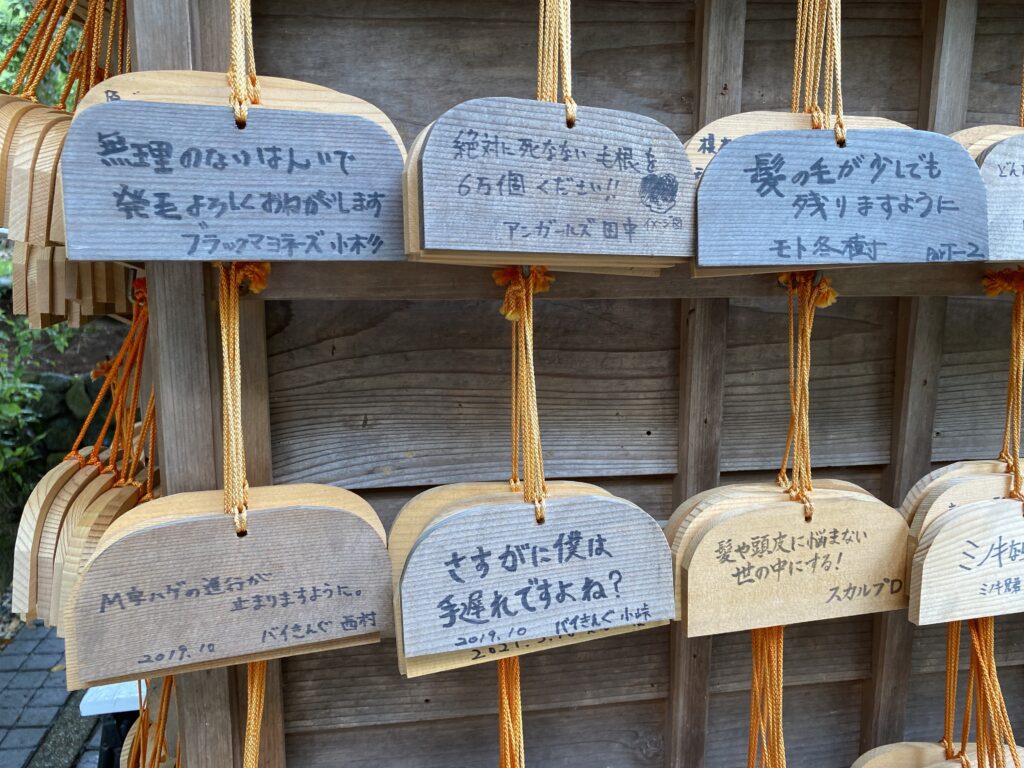 無理のないはんいで
発毛よろしくおねがいします
ブラックマヨネーズ 小杉
絶対に死なない毛根を
6万個ください!!
アンガールズ 田中
イメージ図
髪の毛が少しでも
残りますように
モト冬樹
PART-2
どん
M字ハゲの進行が
止まりますように。
バイきんぐ 西村
2019.10
さすがに僕は
手遅れですよね?
2019.10 バイきんぐ 小峠
髪や頭皮に悩まない
世の中にする!
スカルプD
ミノキ
ミノキ